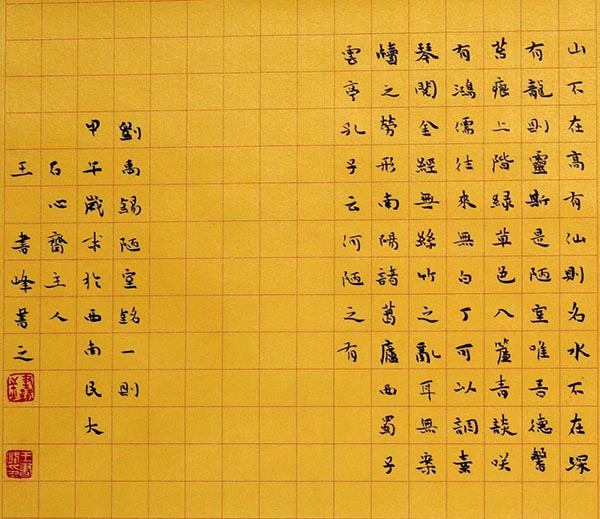 山不在高有仙則名水不在深
有龍則靈斯是陋室唯吾德馨
苔痕上階緑草色入簾青談咲
有鴻儒往來無白丁可以調素
琴閱金經無絲竹之亂耳無案
牘之勞形南陽諸葛廬西蜀子
雲亭孔子云何陋之有
劉禹錫陋室銘一則
甲午歲末於西南民大
石心齋主人
王書峰書之